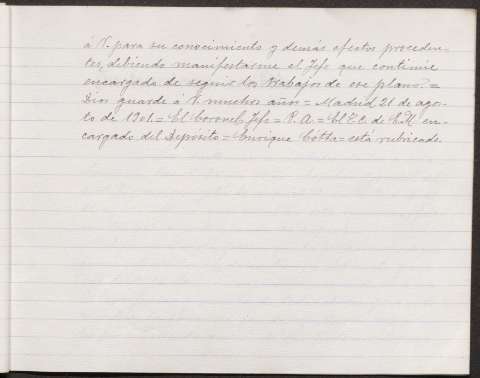 á V. para su conocimiento y demás efectos proceden-
tes, debiendo manifestarme el Jefe que continúe
encargado de seguir los trabajos de ese plano." =
Dios guarde á V. muchos años = Madrid 21 de agos-
to de 1901. = El Coronel Jefe = P. A. = El T. C. de E. M. en-
cargado del Depósito = Enrique = está rubricado.